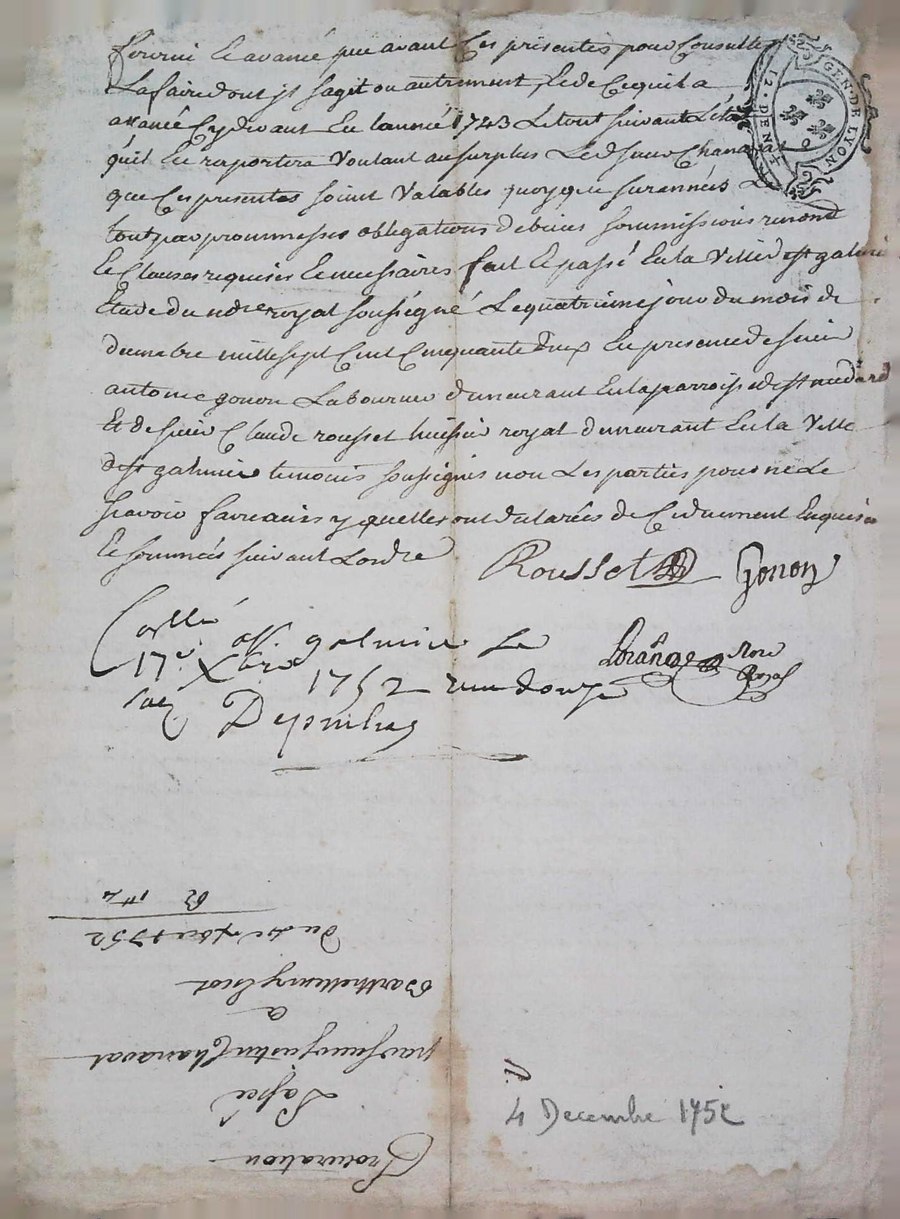 fourni et avancé que avant Ces présentes pour Consulter
Lafaire dont js sagit ou autrement et de Cequil a
avancé Cy devant En lannée 1743 Le tout suivant Léta
quil En raportera Voulant au surplus Led sieur Chanavat
que Ces presentes soient Valables quoy que surannées Le
tout par prommesses obligations de biens sommissions renont
Et Clauses requises Et necessaires fait Et passé En la Ville de st galmier
Etude du ndre royal soussigné Le quatrieme jour du mois de
decembre mille sept Cent Cinquante deux En presence de sieur
antoine gonon Laboureur demeurant En la parroisse de st medard
Et de sieur Claude rousset huissier royal demeurant En la Ville
de st galmier temoins soussignés non Les parties pour ne Le
scavoir faire ainsy quelles ont declarées de Ce duement Enquises
Et sommées suivant Lordre
Rousset Gonon
Corllé a st galmier Le
17e Xbre 1752 recu douze
sols Depinhac
Lorange Nore
Royal
GEN · DE LYON
12 · DEN
Procuration
Passée
par sieur justin Chanavat
a
Barthellemy
du 4e Xbre 1752
4 Decembre 1752